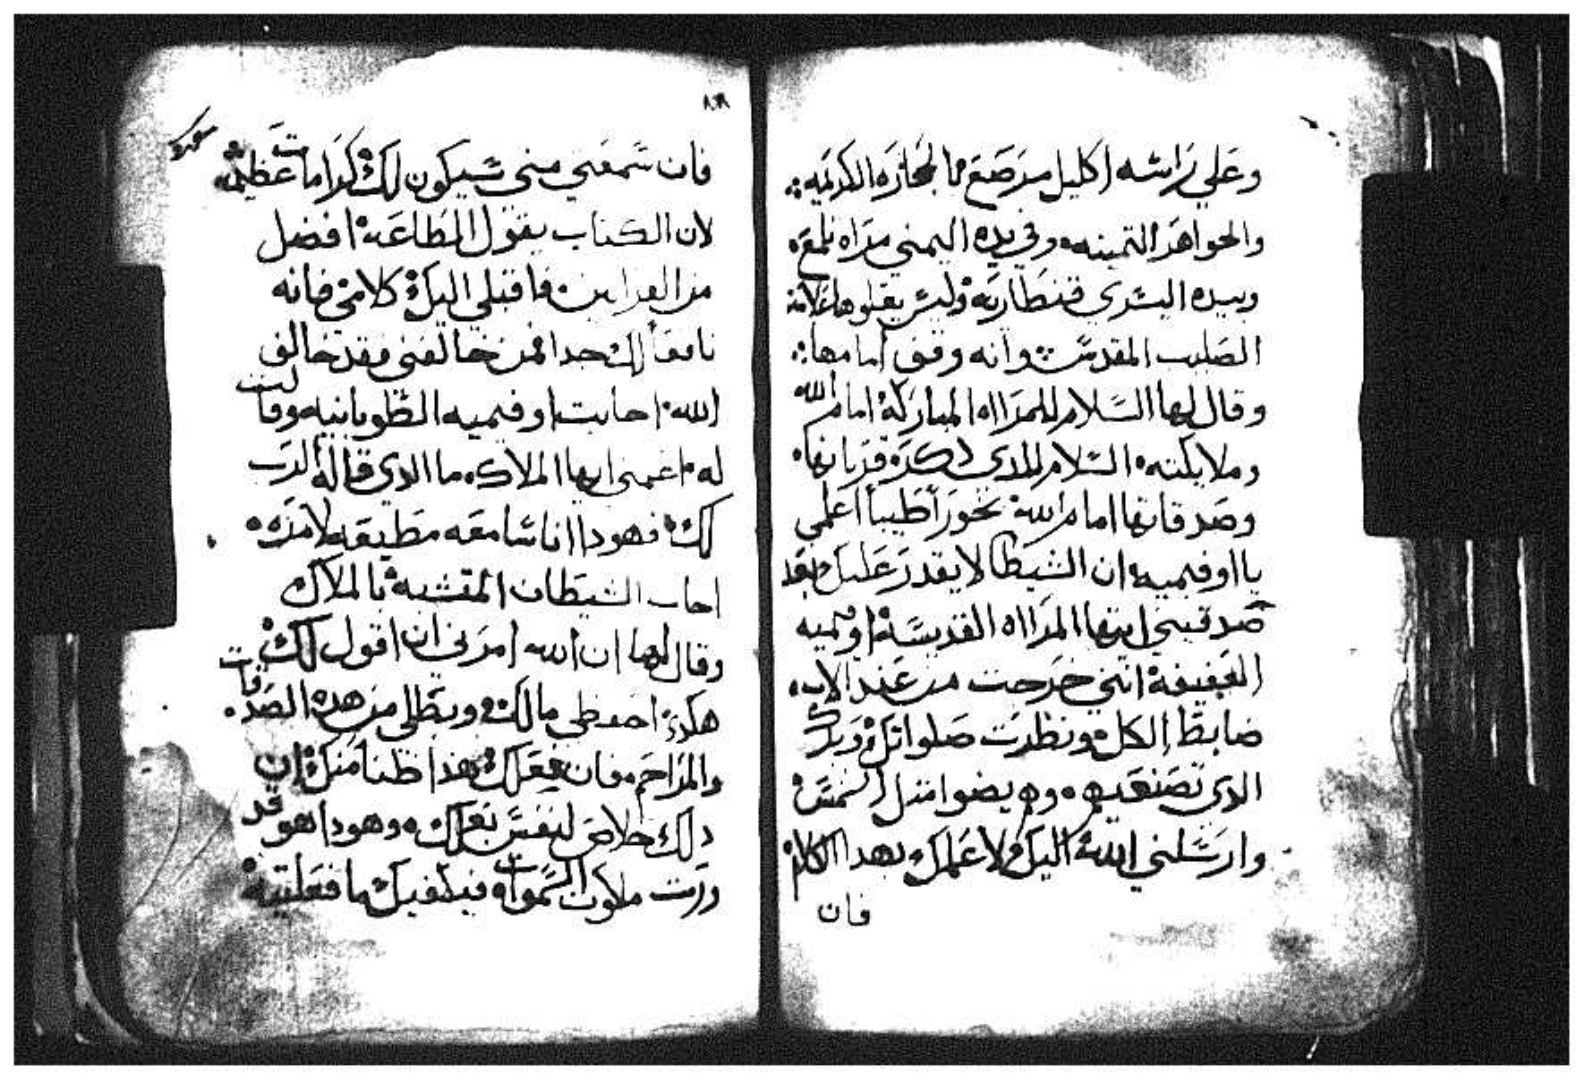 وعلي راسه اكليل مرصع مالحجاره الكريمه
والجواهر التمينه وفي يده اليمني مراه تلمع
وبيده اليسري قنطاريه وليس يعلوها علامة
الصليب المقدس وانه وقف امامها
وقال لها السلام للمراه المباركة امام الله
وملايكته السلام للدي دكره قرباتها
وصدقاتها امام الله بخورا طيبا اعلمي
يا اوفيميه ان الشيطا لا يقدر عليك
صدقيني ايتها المراه القديسة اوفميه
العفيفة انني خرجت من عند الاب
ضابط الكل ونظرت صلواتك وبرك
الدي تصنعيه وهم يضوا متل الشمس
وارسلني الله اليك لاعلمك بهدا الكلام
فان
فان سمعتي مني سيكون لك كرامات عظيمة
لان الكتاب يقول الطاعة افضل
من القرابين فاقبلي اليك كلامي فانه
نافعا لك جدا فمن خالفني فقد خالف
الله اجابت اوفميه الطوبانيه وقالت
له اعلمني ايها الملاك ما الدي قاله الرب
لك فهودا انا سامعه مطيعه لامره
اجاب الشيطان المتشبه بالملاك
وقال لها ان الله امرني ان اقول لك
هكدي احفظي مالك وبطلي من هده الصدقات
والمراحم فان فعلك هدا ظنا منك ان
دلك خلاص لنفس بعلك وهودا هو قد
ورت ملكوت السموات فيكفيك ما فعلتيه